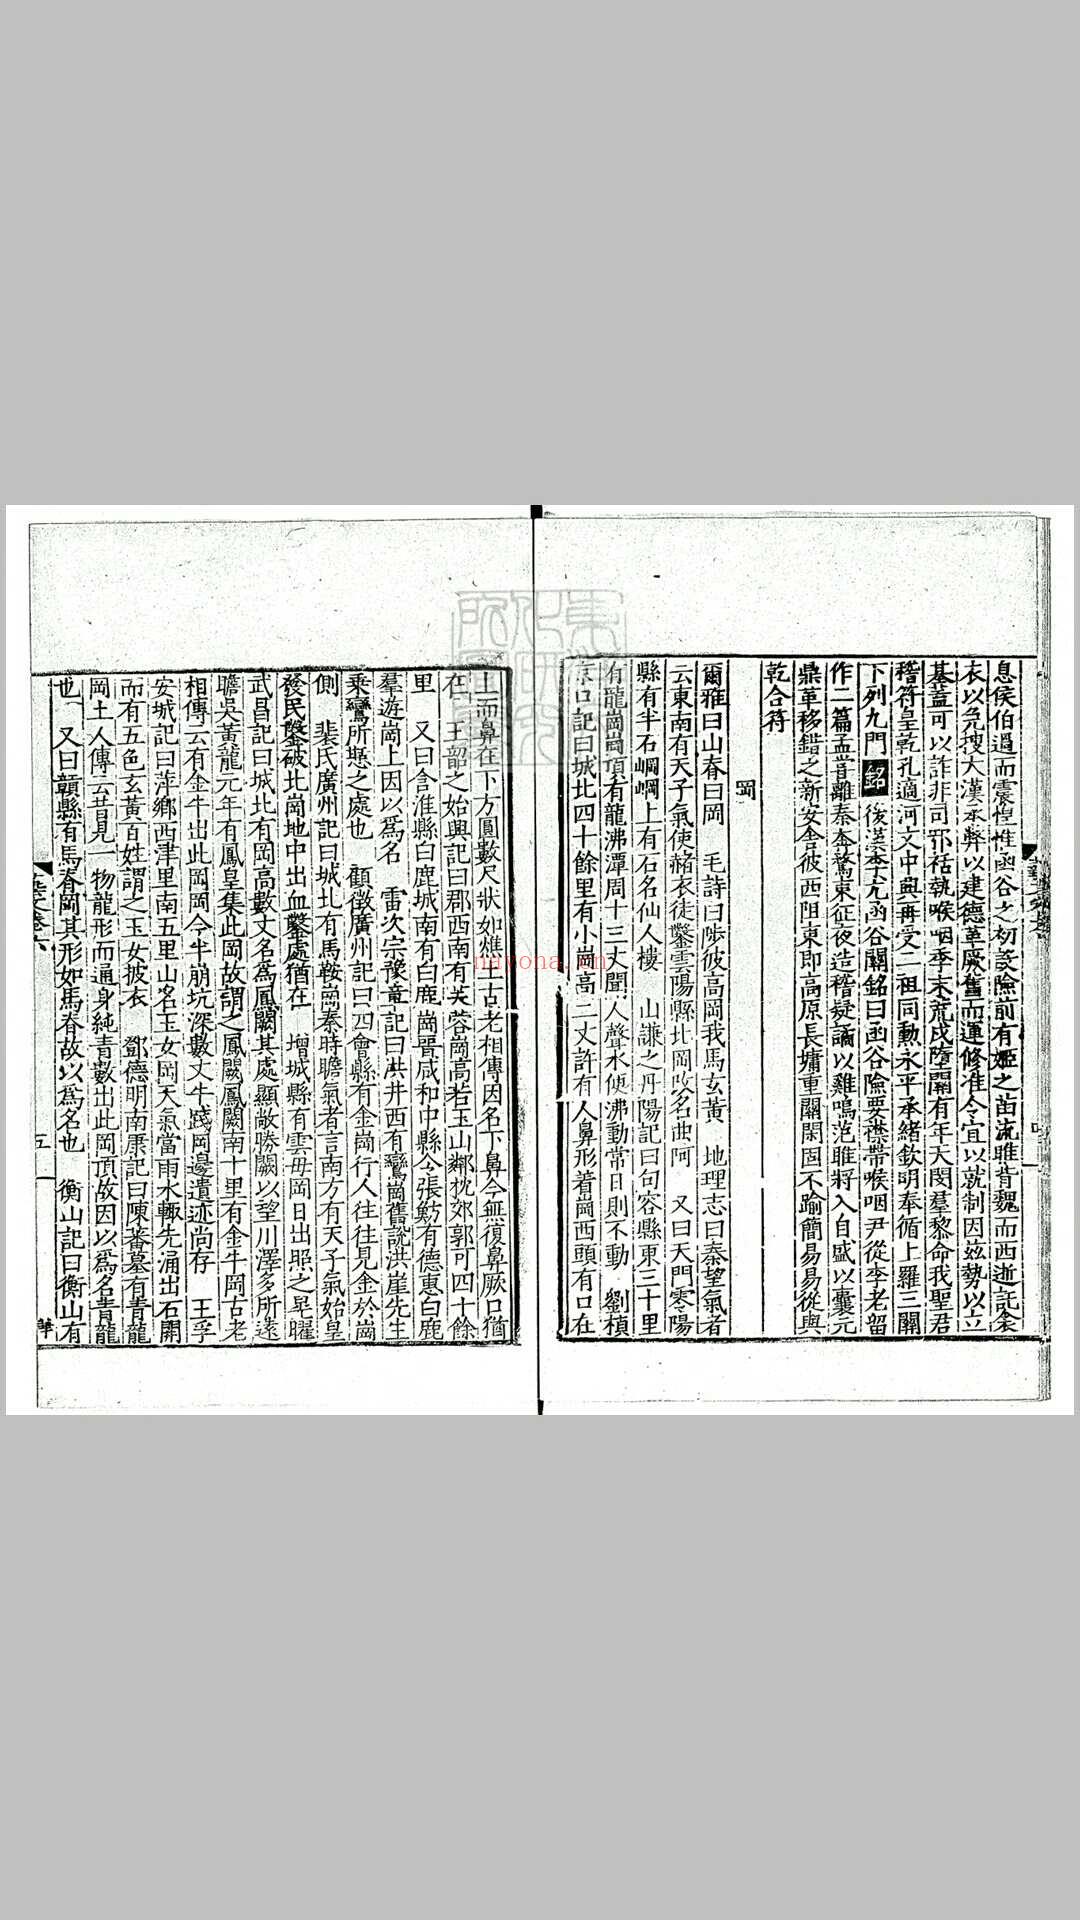 息侯伯過而震惶惟函谷之初設險前有姬之苗流嘅背魏而西逝託衾
衣以免搜大漢承弊以建德革厥舊而運修准令宜以就制因玆勢以立
基蓋可以詐非司邪括執喉咽季末荒戍墮闕有年天閔羣黎命我聖君
稽符皇乾孔適河文中興再受二祖同勳永平承緒欽明奉循上羅三關
下列九門 銘 後漢李尤函谷關銘曰函谷險要襟帶喉咽尹從李老留
作二篇孟嘗離秦奔騖東征夜造稽疑譎以雞鳴范雎將入自盛以囊元
鼎革移錯之新安舍彼西阻東即高原長墉重關閑固不踰簡易易從與
乾合符
岡
爾雅曰山脊曰岡 毛詩曰陟彼高岡我馬玄黃 地理志曰秦望氣者
云東南有天子氣使赭衣徒鑿雲陽縣北岡改名曲阿 又曰天門零陽
縣有半石崗崗上有石名仙人樓 山謙之丹陽記曰句容縣東三十里
有龍崗崗頂有龍沸潭周十三丈聞人聲水便沸動常日則不動 劉楨
京口記曰城北四十餘里有小崗高二丈許有人鼻形著岡西頭有口在
上而鼻在下方圓數尺狀如燋土古老相傳因名下鼻今無復鼻厥口猶
在 王韶之始興記曰郡西南有芙蓉崗高若玉山鄰枕郊郭可四十餘
里 又曰含淮縣白鹿城南有白鹿崗晉咸和中縣令張魴有德惠白鹿
羣遊崗上因以爲名 雷次宗豫章記曰洪井西有鸞崗舊說洪崖先生
乘鸞所憇之處也 顧徵廣州記曰四會縣有金崗行人往往見金於崗
側 裴氏廣州記曰城北有馬鞍崗秦時瞻氣者言南方有天子氣始皇
發民鑿破北崗地中出血鑿處猶在 增城縣有雲母岡日出照之晃曜
武昌記曰城北有岡高數丈名爲鳳闕其處顯敞勝闕以望川澤多所遠
瞻吳黃龍元年有鳳皇集此岡故謂之鳳闕鳳闕南十里有金牛岡古老
相傳云有金牛出此岡岡今半崩坑深數丈牛踐岡邊遺迹尚存 王孚
安城記曰萍鄉西津里南五里山名玉女岡天氣當雨水輙先涌出石開
而有五色玄黃百姓謂之玉女披衣 鄧德明南康記曰陳蕃墓有青龍
岡土人傳云昔見一物龍形而通身純青數出此岡頂故因以爲名青龍
也 又曰贛縣有馬脊岡其形如馬脊故以爲名也 衡山記曰衡山有
藝文卷六
五
nayona.cn